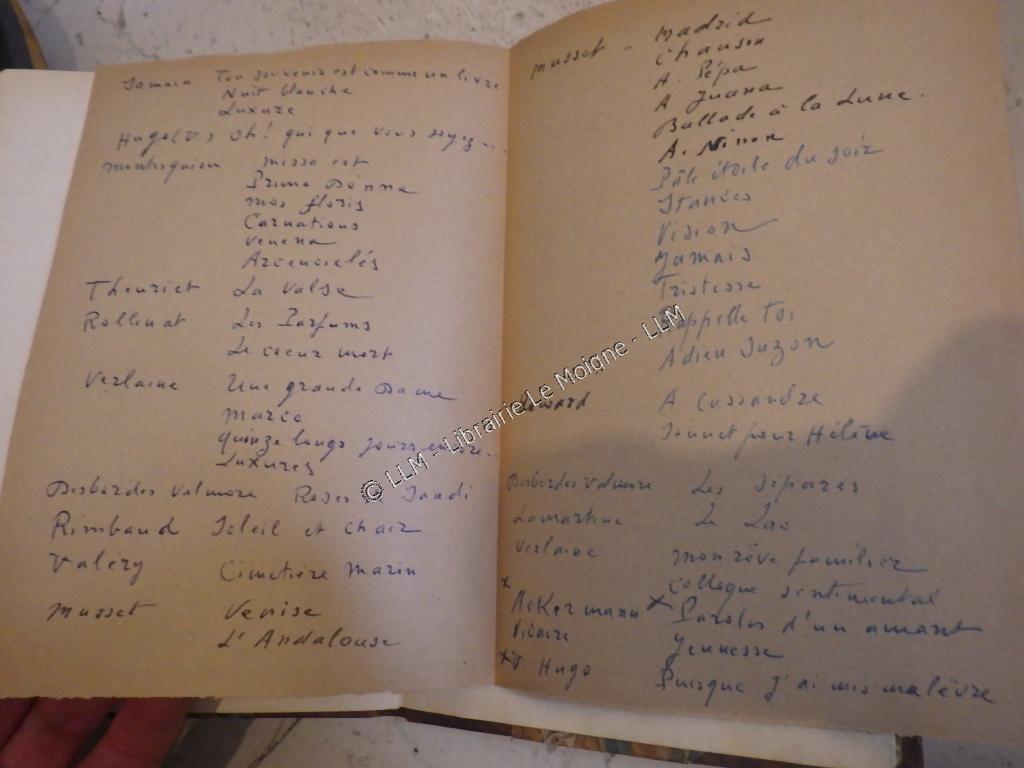 Samain Ton souvenir est comme un livre
Nuit blanche
Luxure
Hugo (V.) Oh! qui que vous soyez...
Montesquiou Missa est
Prima Donna
Mos floris
Carnations
Venena
Arcencielés
Theuriet La valse
Rollinat Les Parfums
Le coeur mort
Verlaine Une grande Dame
Marco
quinze longs jours encore...
Luxures
Desbordes Valmore Roses Saadi
Rimbaud Soleil et chair
Valéry Cimetière Marin
Musset Venise
L'Andalouse
Musset - Madrid
Chanson
A. Pépa
A Juana
Ballade à la Lune.
A. Ninon
Pâle étoile du soir
Stances
Vision
Jamais
Tristesse
Rappelle toi
Adieu Suzon
A Cassandre
Sonnet pour Hélène
Desbordes Valmore Les séparés
Lamartine Le Lac
Verlaine mon rêve familier
colloque sentimental
x Ackermann x Paroles d'un amant
Vicaire Jeunesse
x V. Hugo Puisque j'ai mis ma lèvre
© LLM - Librairie Le Moigne - LLM